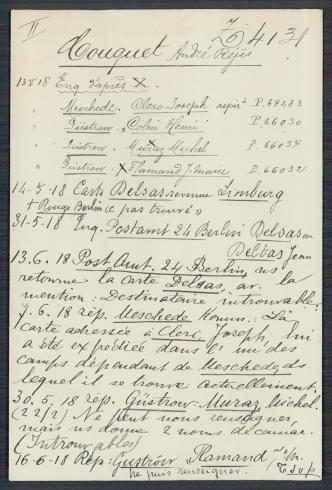 II
Couquet André Réjis
13 V 18 Enq d'après X.
" Meschede. Clerc Joseph aspirt P.64283
" Güstrow x Colin Henri P.66030
" Güstrow. Muraz Michel P.66034
" Güstrow X Flamand J. Marie P.66032
14-5-18 Carte Delsas revenue Limburg
+ Rouge Berlin « pas trouvé »
31-5-18 Enq. Postamt 24 Berlin Delsas ou
Deltas Jean
13.6.18 Post Amt. 24 Berlin, ns
retourne la carte Delsas, av. la
mention: Destinataire introuvable.
7.6.18 rép. Meschede Komm.: La
carte adressée à Clerc, Joseph, lui
a été expédiée dans l'un des
camps dépendant de Meschede, ds
lequel il se trouve actuellement.
30.5.18 rép. Güstrow. Muraz, Michel.
(22/2) Ne peut nous renseigner,
mais ns donne 2 noms de camar.
(Introuvables)
16-6-18 Rép: Güstrow Flamand J. M.
ne puis renseigner.